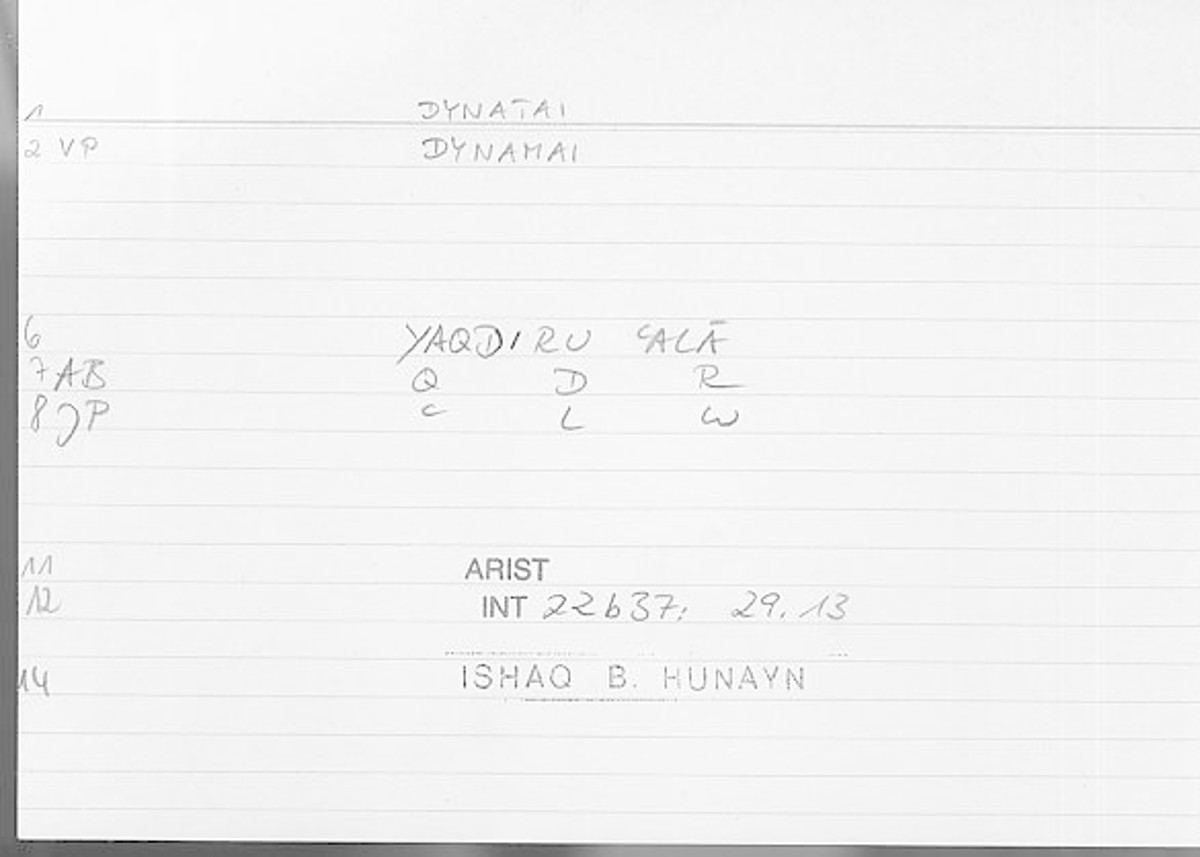 1 DYNATAI
2 VP DYNAMAI
6 YAQDIRU ʿALĀ
7 AB Q D R
8 JP ʿ L W
11 ARIST
12 INT 22b37: 29.13
14 ISHAQ B. HUNAYN